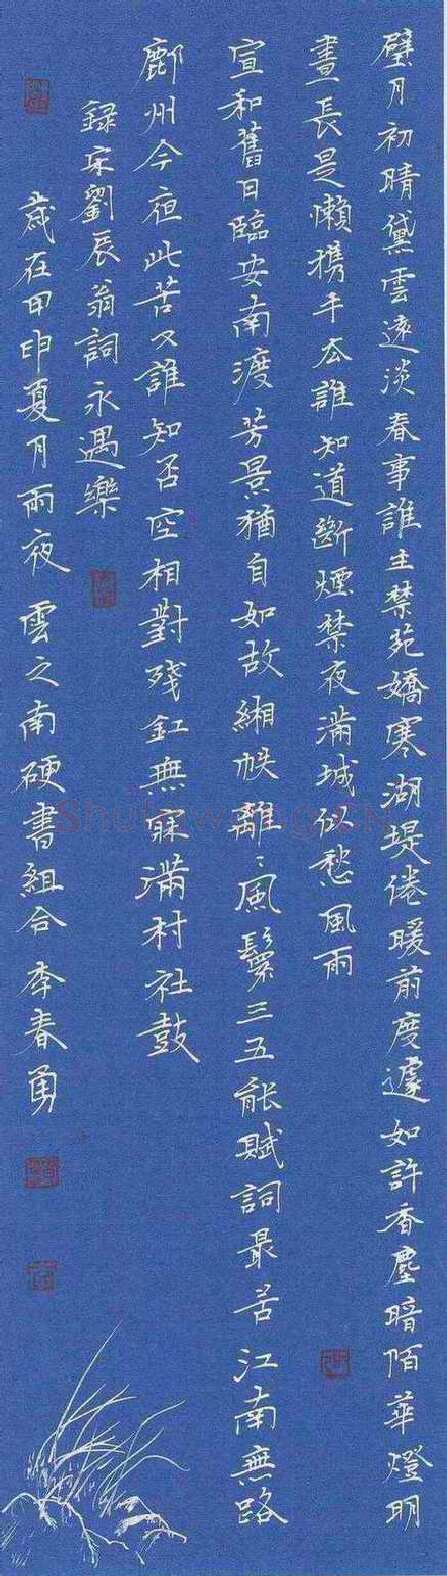 璧月初晴黛雲遠淡春事誰主禁苑嬌寒湖堤倦暖前度遽如許香塵暗陌華燈明
晝長是懶携手去誰知道斷煙禁夜滿城似愁風雨
宣和舊日臨安南渡芳景猶自如故緗帙離〻風鬟三五能賦詞最苦江南無路
鄜州今夜此苦又誰知否空相對殘釭無寐滿村社鼓
録宋劉辰翁詞永遇樂
歲在甲申夏月雨夜雲之南硬書組合李春勇